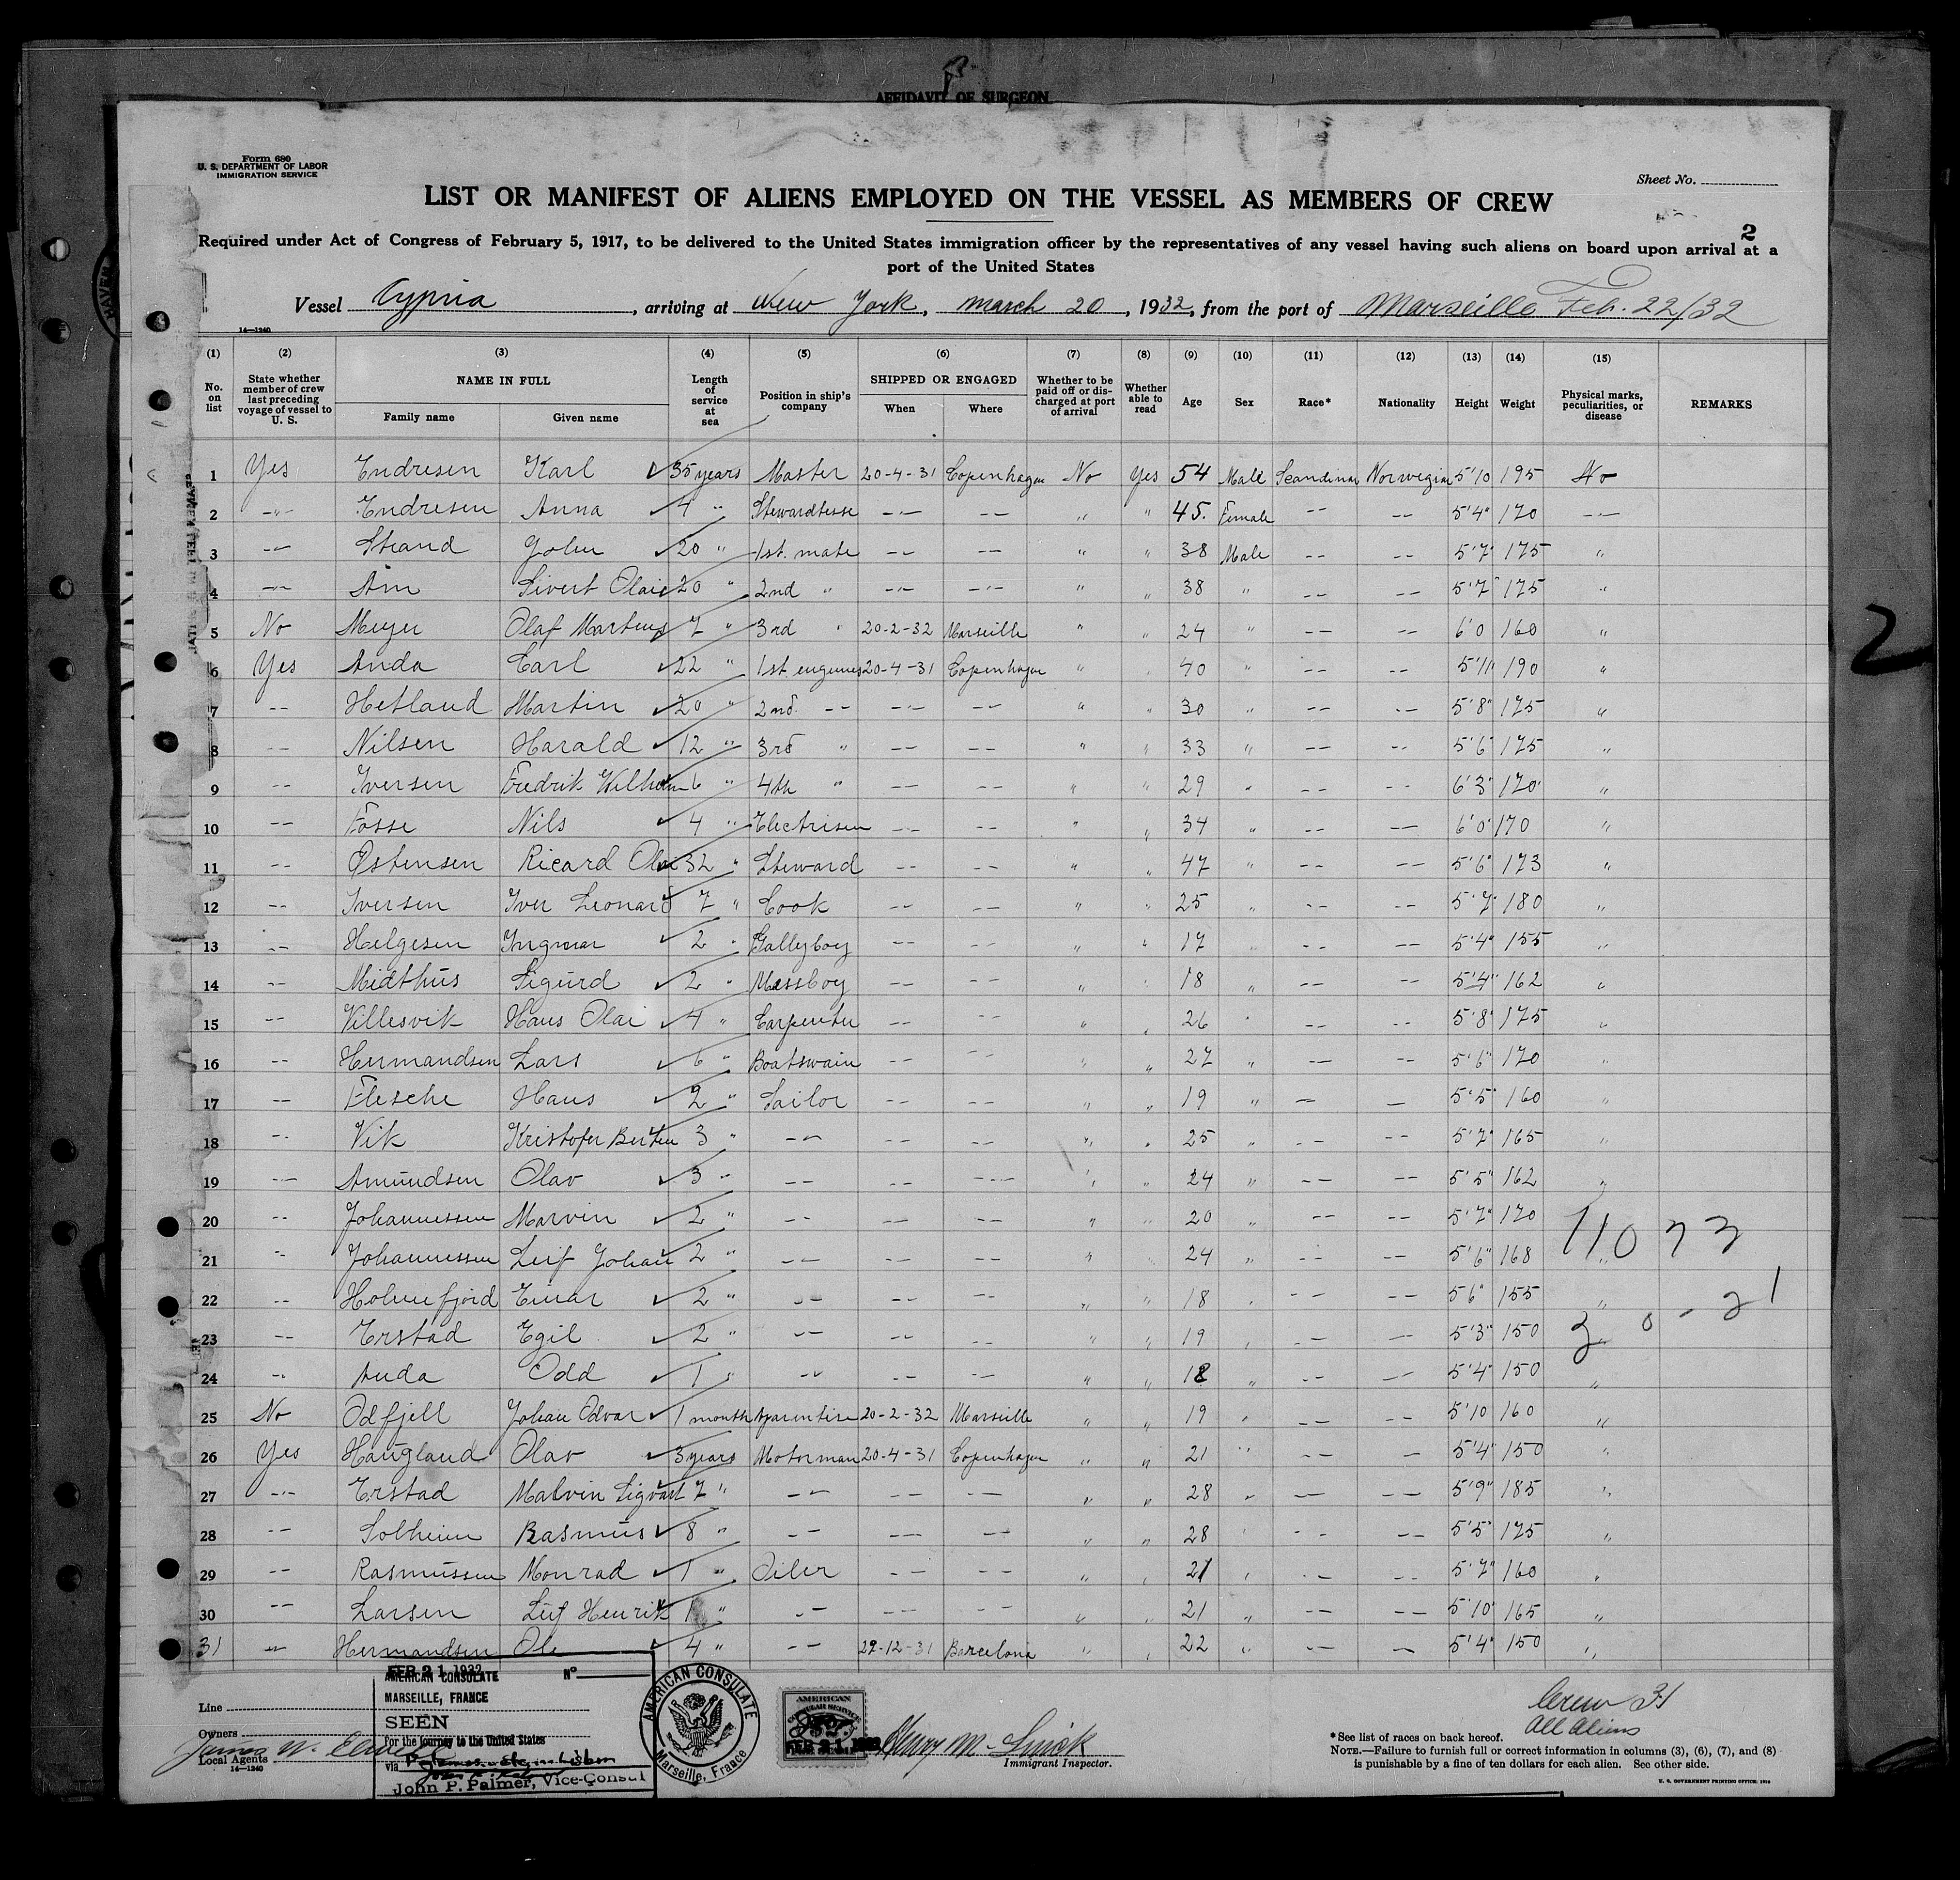 AFFIDAVIT OF SURGEON
Form 680
U. S. DEPARTMENT OF LABOR
IMMIGRATION SERVICE
Sheet No.
LIST OR MANIFEST OF ALIENS EMPLOYED ON THE VESSEL AS MEMBERS OF CREW
2
Required under Act of Congress of February 5, 1917, to be delivered to the United States immigration officer by the representatives of any vessel having such aliens on board upon arrival at a
port of the United States
Vessel Cypria, arriving at New York, March 20, 1932, from the port of Marseille Feb. 22/32
14—1240
(1) (2) (3) (4) (5) (6) (7) (8) (9) (10) (11) (12) (13) (14) (15)
No. on list State whether member of crew last preceding voyage of vessel to U. S. NAME IN FULL Family name Given name Length of service at sea Position in ship's company SHIPPED OR ENGAGED When Where Whether to be paid off or discharged at port of arrival Whether able to read Age Sex Race* Nationality Height Weight Physical marks, peculiarities, or disease REMARKS
1 Yes Endresen Karl 35 years Master 20-4-31 Copenhagen No Yes 54 Male Scandinav Norwegian 5'10 195 No
2 -"- Endresen Anna 4 " Stewardesse -"- -- " " 45. Female -- -- 5'4" 170 -"-
3 -"- Strand John 20 " 1st. mate -- -- " " 38 Male -- -- 5'7" 175 "
4 -"- Am Sivert Olai 20 " 2nd " -"- -"- " " 38 " -- -- 5'7" 175 "
5 No Meyer Olaf Martens 7 " 3rd " 20-2-32 Marseille " " 24 " -- -- 6'0 160 "
6 Yes Anda Carl 22 " 1st engineer 20-4-31 Copenhagen " " 40 5'11" 190 "
7 -- Hetland Martin 20 " 2nd. -- -"- -- " " 30 " -- -- 5'8" 175 "
8 -- Nilsen Harald 12 " 3rd " -- -- " " 33 " -- -- 5'6" 175 "
9 -- Iversen Fredrik Wilhelm 6 " 4th " -- -- " " 29 " -- -- 6'3" 170 "
10 -- Fosse Nils 4 " Electrisen -- -- " " 34 " -- -- 6'0" 170 "
11 -- Østensen Ricard Olai 32 " Steward -- -- " " 47 " -- -- 5'6" 173 "
12 -- Iversen Iver Leonard 7 " Cook -- -- " " 25 " -- -- 5'7" 180 "
13 -- Helgesen Ingmar 2 " Gallyboy -- -- " " 17 -- -- 5'4" 155 "
14 -- Midthus Sigurd 2 " Messboy -- -- " " 18 " -- -- 5'4" 162 "
15 -- Villesvik Hans Olai 4 " Carpenter -- -- " " 26 " -- -- 5'8" 175 "
16 -- Hermandsen Lars 6 " Boatswain -- -- " " 27 " -- -- 5'6" 170 "
17 -- Flesche Hans 2 " Sailor -- -- " " 19 " -- -- 5'5" 160 "
18 -- Vik Kristofer Berten 3 " -- -- -- " " 25 " -- -- 5'7" 165 "
19 -- Amundsen Olav 3 " -- -- -- " " 24 " -- -- 5'5" 162 "
20 -- Johannessen Marvin 2 " -- -- -- " " 20 " -- -- 5'7" 170
21 -- Johannessen Leif Johan 2 " -- -- -- " " 24 " -- -- 5'6" 168 "
22 -- Holmefjord Einar 2 " -- -- -- " " 18 " -- -- 5'6" 155 "
23 -- Erstad Egil 2 " -- -- -- " " 19 " -- -- 5'3" 150
24 -- Anda Odd 1 " -- -- -- " " 18 " -- -- 5'4" 150 "
25 No Odfjell Johan Odvar 1 month Aparentise 20-2-32 Marseille " " 19 " -- -- 5'10 160 "
26 Yes Haugland Olav 3 years Motorman 20-4-31 Copenhagen " " 21 " -- -- 5'4" 150 "
27 -"- Erstad Malvin Sigvart 7 " -- -- -- " " 28 " -- -- 5'9" 185 "
28 -- Solheim Rasmus 8 " -- -- -- " " 28 " -- -- 5'5" 175 "
29 -- Rasmussen Monrad 1 " Oiler -- -- " " 21 " -- -- 5'7" 160 "
30 -- Larsen Leif Henrik 1 " -- -- -- " " 21 " -- -- 5'10" 165 "
31 -"- Hermandsen Ole 4 " -- 29-12-31 Barcelona " " 22 " -- -- 5'4" 150 "
2
Crew 31
All Aliens
Line
Owners
Local Agents
14—1240
FEB 21 1932 Nº
AMERICAN CONSULATE
MARSEILLE, FRANCE
SEEN
for the journey to the United States
via
John P. Palmer, Vice-Consul
AMERICAN CONSULATE
Marseille, France
AMERICAN
CONSULAR SERVICE
FEB 21 1932
Henry M.
Immigrant Inspector.
*See list of races on back hereof.
NOTE.—Failure to furnish full or correct information in columns (3), (6), (7), and (8)
is punishable by a fine of ten dollars for each alien. See other side.